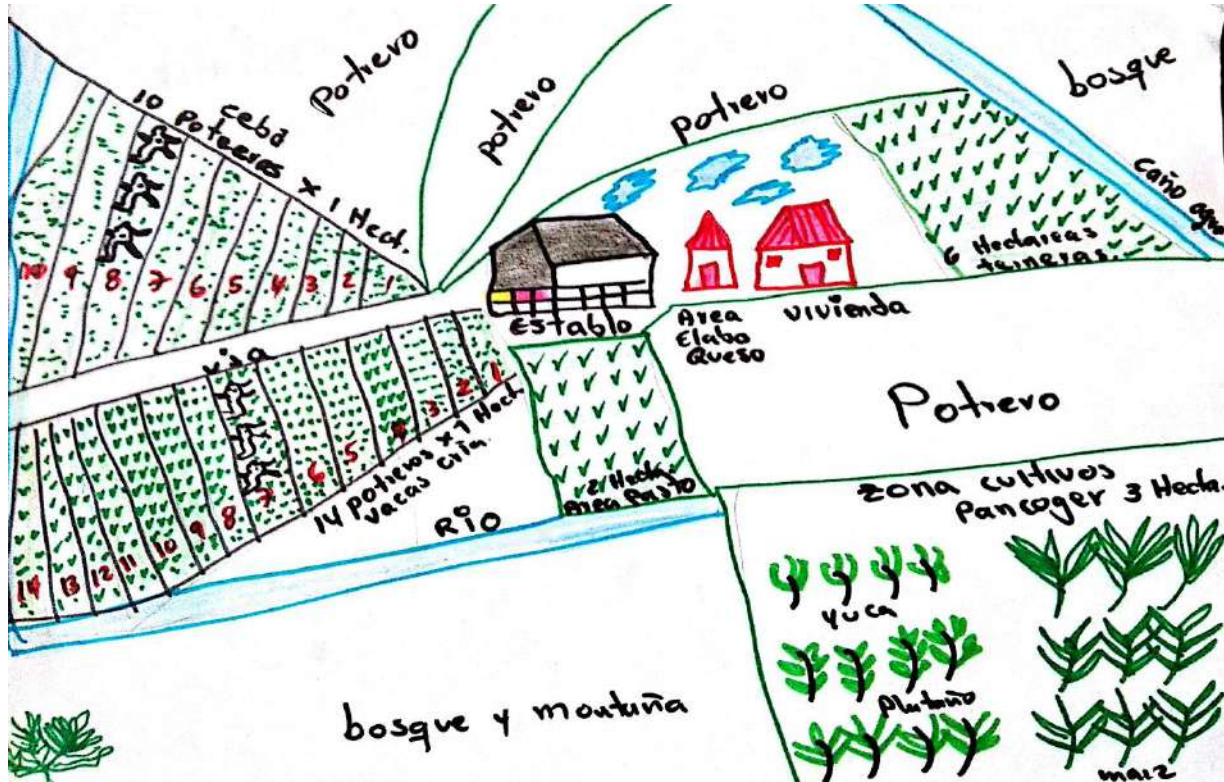 Potrero
potrero
Potrero
bosque
Caño agua
ceba
10 Potreros x 1 Hect.
10 9 8 7 6 5 4 3 2 1
6 Hectareas
terneras.
Establo
Area
Elabo
Queso
vivienda
Via
14 13 12 11 10 9 8 7 6 5 4 3 2 1
14 Potreros x 1 Hect
vacas cria.
2 Hecta
Area Pasto
Potrero
RIO
zona cultivos
Pancoger 3 Hecta.
yuca
Platano
maiz
bosque y montaña